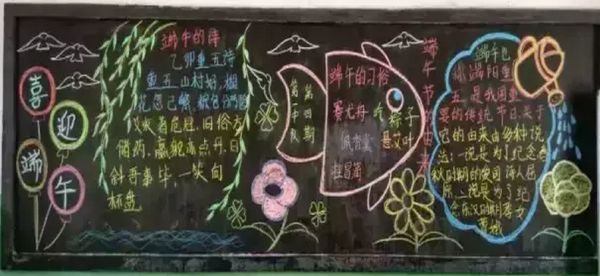 喜
迎
端
午
端午的诗
乙卯重五诗
重五山村好,榴
花忽已繁,粽包分两髻
艾束著危冠,旧俗方
储药,羸躯亦点丹,日
斜吾事毕,一笑向
杯盘
第
期
端午的习俗
赛龙舟
吃粽子
佩香囊
悬艾叶
拴
端
午
节
的
由
来
端午也
称端阳重
五是我国重
要的传统节日,关于
它的由来由多种说
法:一说是为了纪念春
秋时期的爱国诗人屈
原,又说是为了纪
念东汉的
曹娥